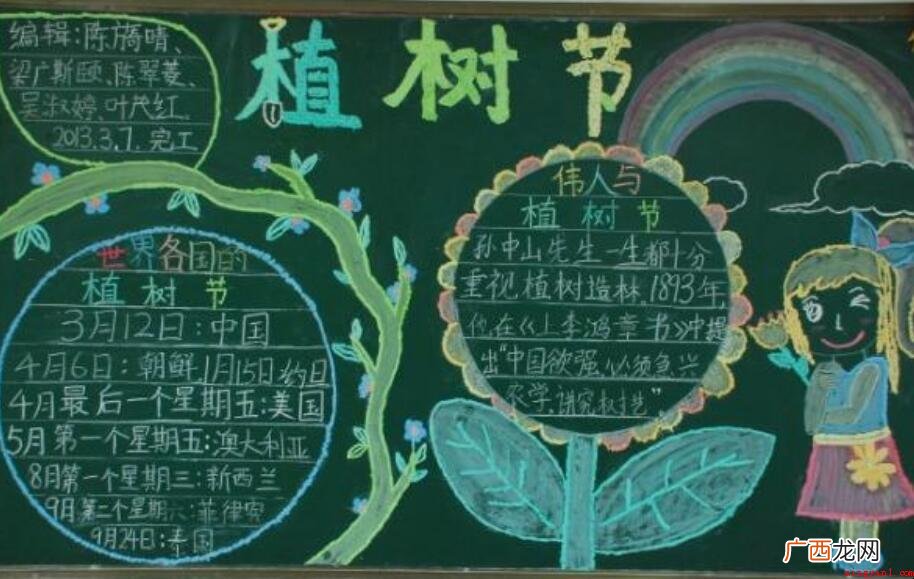 编辑:陈旖晴、
梁广斯颐、陈翠菱、
吴淑婷、叶茂红.
2013.3.7.完工
植树节
世界各国的
植树节
3月12日:中国
4月6日:朝鲜 1月15日:约旦
4月最后一个星期五:美国
5月第一个星期五:澳大利亚
8月第一个星期三:新西兰
9月第二个星期六:菲律宾
9月24日:泰国
伟人与
植树节
孙中山先生一生都十分
重视植树造林.1893年
他在《上李鸿章书》中提
出"中国欲强,必须急兴
农学,讲究树艺".
广西龙网